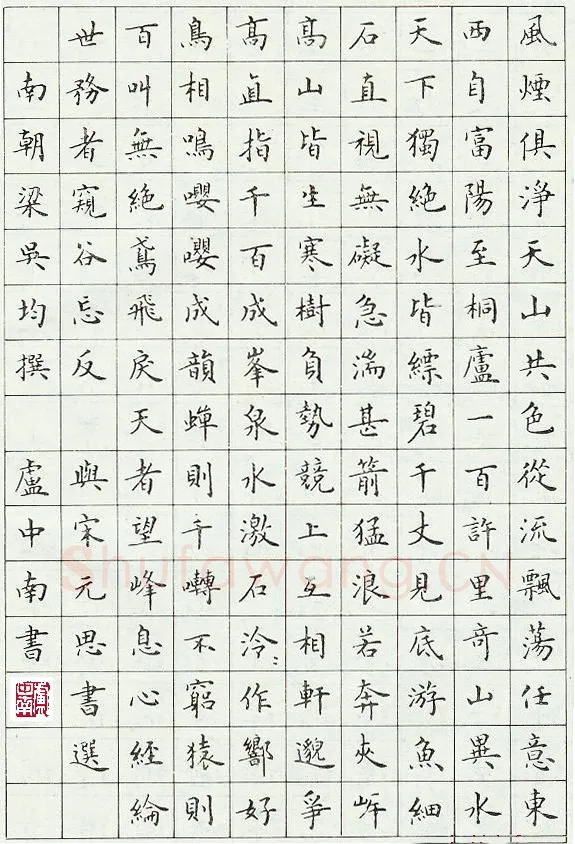 風煙俱淨天山共色從流飄蕩任意東
西自富陽至桐廬一百許里奇山異水
天下獨絕水皆縹碧千丈見底游魚細
石直視無礙急湍甚箭猛浪若奔夾岸
高山皆生寒樹負勢競上互相軒邈爭
高直指千百成峯泉水激石泠:作響好
鳥相鳴嚶嚶成韻蟬則千囀不窮猿則
百叫無絕鳶飛戾天者望峰息心經綸
世務者窺谷忘反 與宋元思書選
南朝梁吳均撰 盧中南書
盧中南
Shufawang.CN